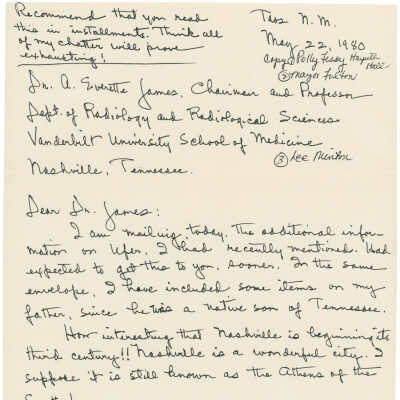 Recommend that you read
this in installments. Think all
of my chatter will prove
exhausting!
Taos N.M.
May 22, 1980
Copy: Polly Fessey
② Mayor Fulton
Dr. A. Everette James, Chairman and Professor
Dept. of Radiology and Radiological Sciences
Vanderbilt University School of Medicine
③ Lee Minton
Nashville, Tennessee.
Dear Dr. James:
I am mailing, today, the additional infor-
mation on Ufer, I had recently mentioned. Had
expected to get this to you, sooner. In the same
envelope, I have included some items on my
father, since he was a native son of Tennessee.
How interesting that Nashville is beginning its
third century!! Nashville is a wonderful city. I
suppose it is still known as the Athens of the